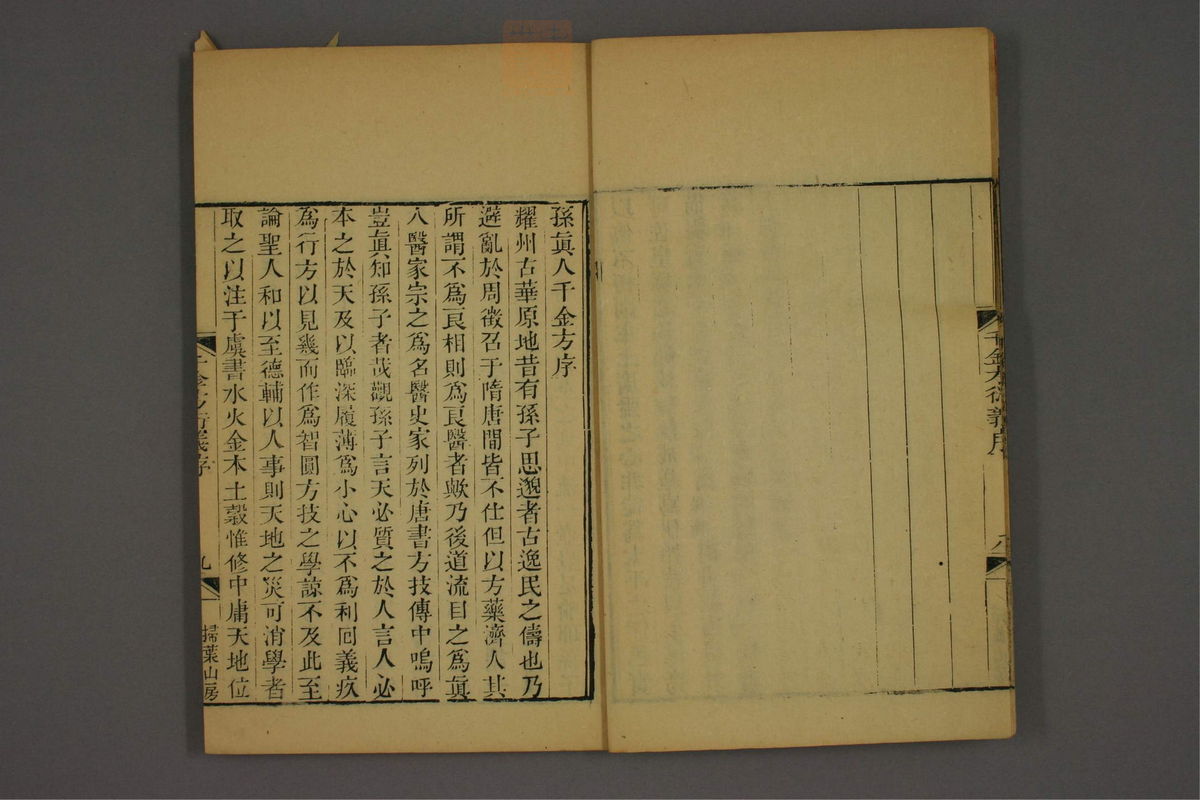 千金方衍義序
八
孫眞人千金方序
耀州古華原地昔有孫子思邈者古逸民之儔也乃
避亂於周徵召于隋唐間皆不仕但以方藥濟人其
所謂不爲良相則爲良醫者歟乃後道流目之爲眞
人醫家宗之爲名醫史家列於唐書方技傳中嗚呼
豈眞知孫子者哉觀孫子言天必質之於人言人必
本之於天及以臨深履薄爲小心以不爲利囘義疚
爲行方以見幾而作爲智圓方技之學諒不及此至
論聖人和以至德輔以人事則天地之災可消學者
取之以注于虞書水火金木土穀惟修中庸天地位
千金方衍義序
九
掃葉山房